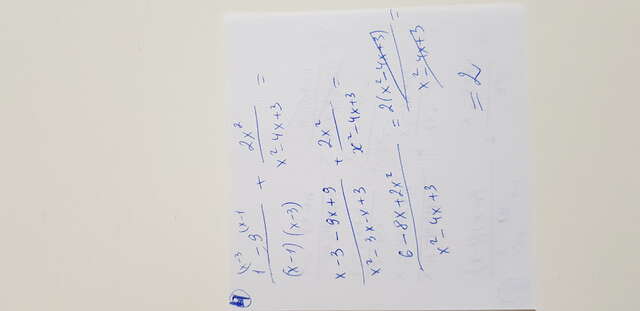 (x-3 (x-1
1 - 9 / (x-1)(x-3) + 2x² / x²-4x+3 =
x-3-9x+9 / x²-3x-x+3 + 2x² / x²-4x+3 =
6-8x+2x² / x²-4x+3 = 2(x²-4x+3) / x²-4x+3 =
= 2